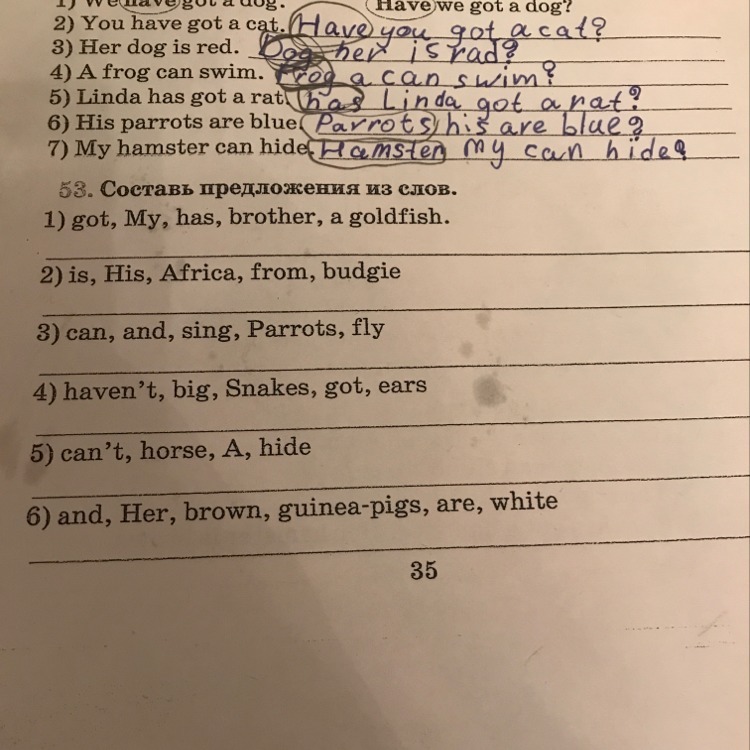 1) We have got a dog. Have we got a dog?
2) You have got a cat. Have you got a cat?
3) Her dog is red. Dog her is rad?
4) A frog can swim. Frog a can swim?
5) Linda has got a rat. has Linda got a rat?
6) His parrots are blue. Parrots his are blue?
7) My hamster can hide. Hamster my can hide?
53. Составь предложения из слов.
1) got, My, has, brother, a goldfish.
2) is, His, Africa, from, budgie
3) can, and, sing, Parrots, fly
4) haven't, big, Snakes, got, ears
5) can't, horse, A, hide
6) and, Her, brown, guinea-pigs, are, white
35